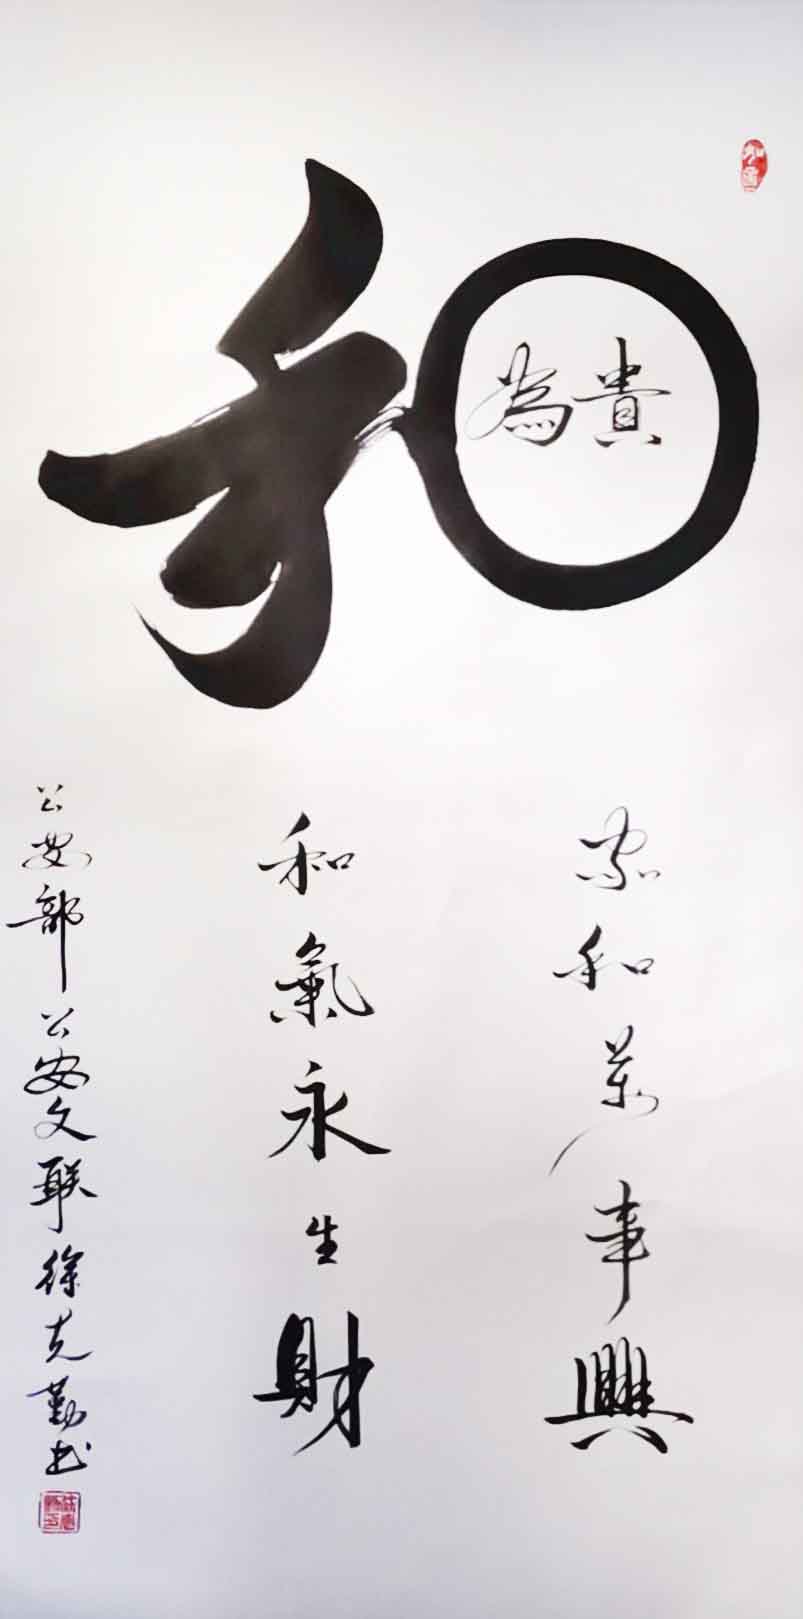 和
為貴
家和萬事興
和氣永生財
公安部公安文联徐克勤书